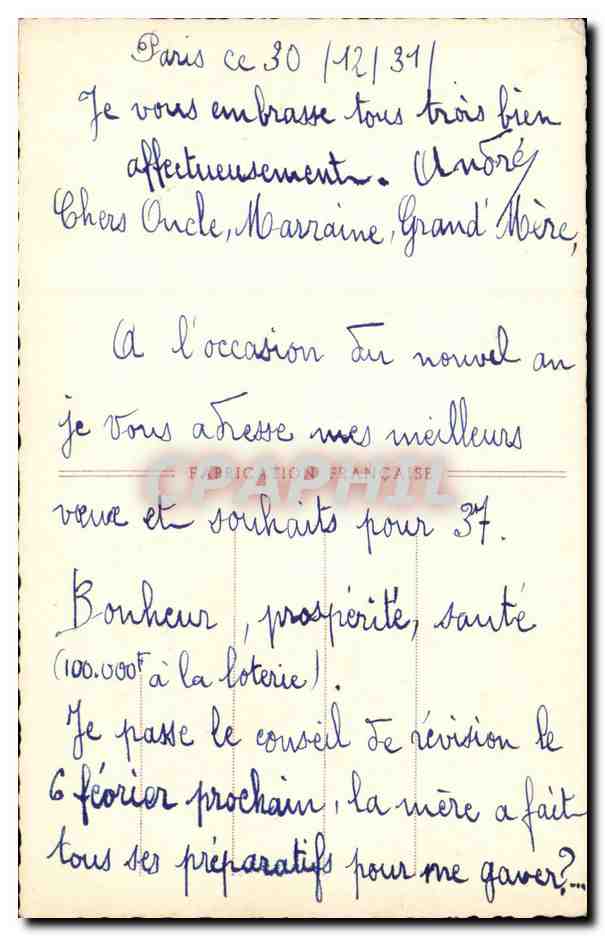 Paris ce 30/12/31/
Je vous embrasse tous trois bien
affectueusement. André
Chers Oncle, Marraine, Grand' Mère,
A l'occasion du nouvel an
je vous adresse mes meilleurs
FABRICATION FRANÇAISE
CPAPHIL
vœux et souhaits pour 37.
Bonheur, prospérité, santé
(100.000F à la loterie).
Je passe le conseil de révision le
6 février prochain, la mère a fait
tous ses préparatifs pour me gaver?...